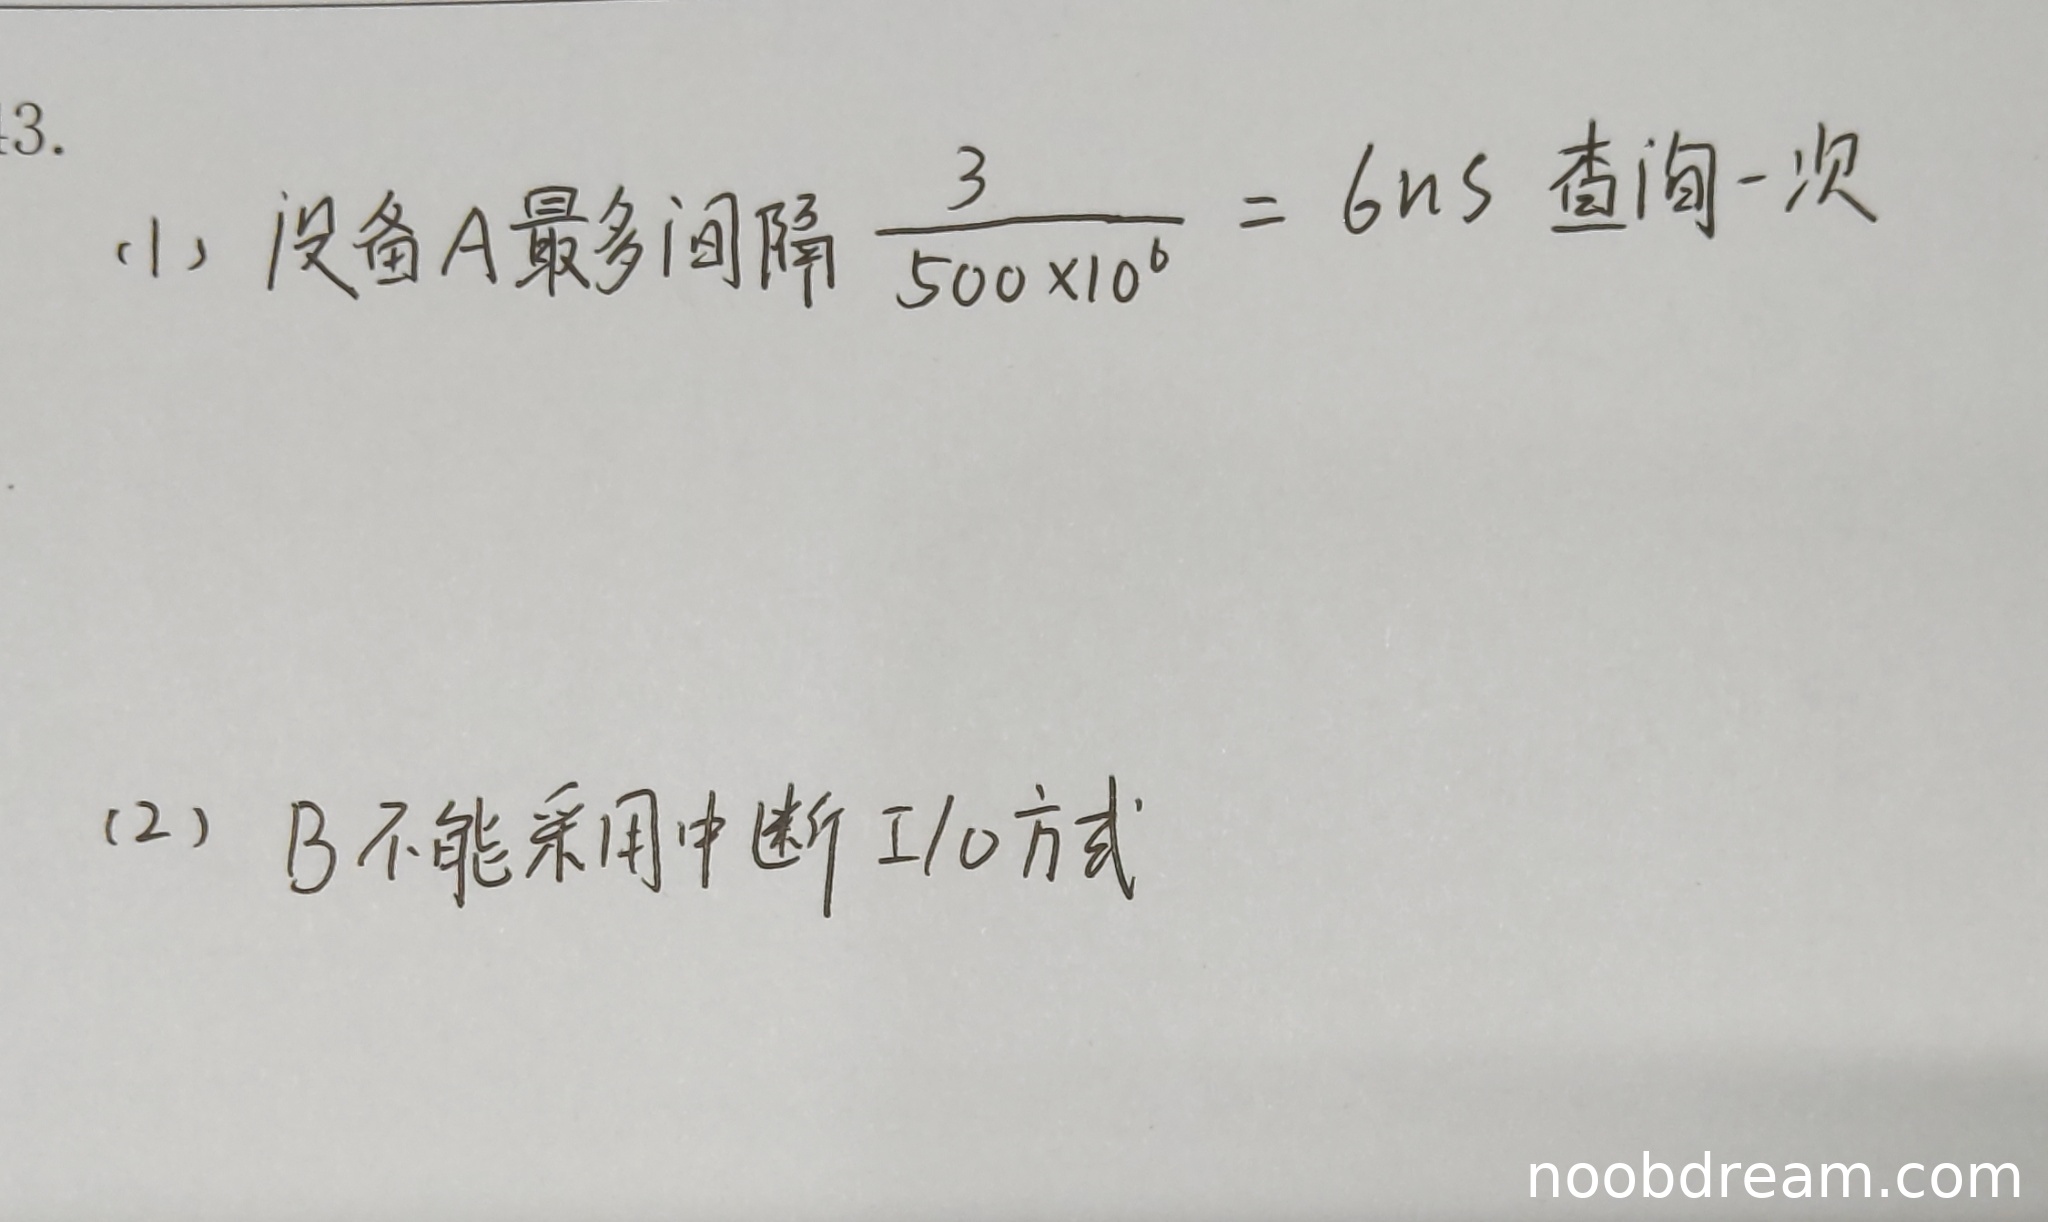 43.
(1) 设备A最多间隔 3/(500×10⁶) = 6ns 查询一次
(2) B不能采用中断 I/O方式
noobdream.com